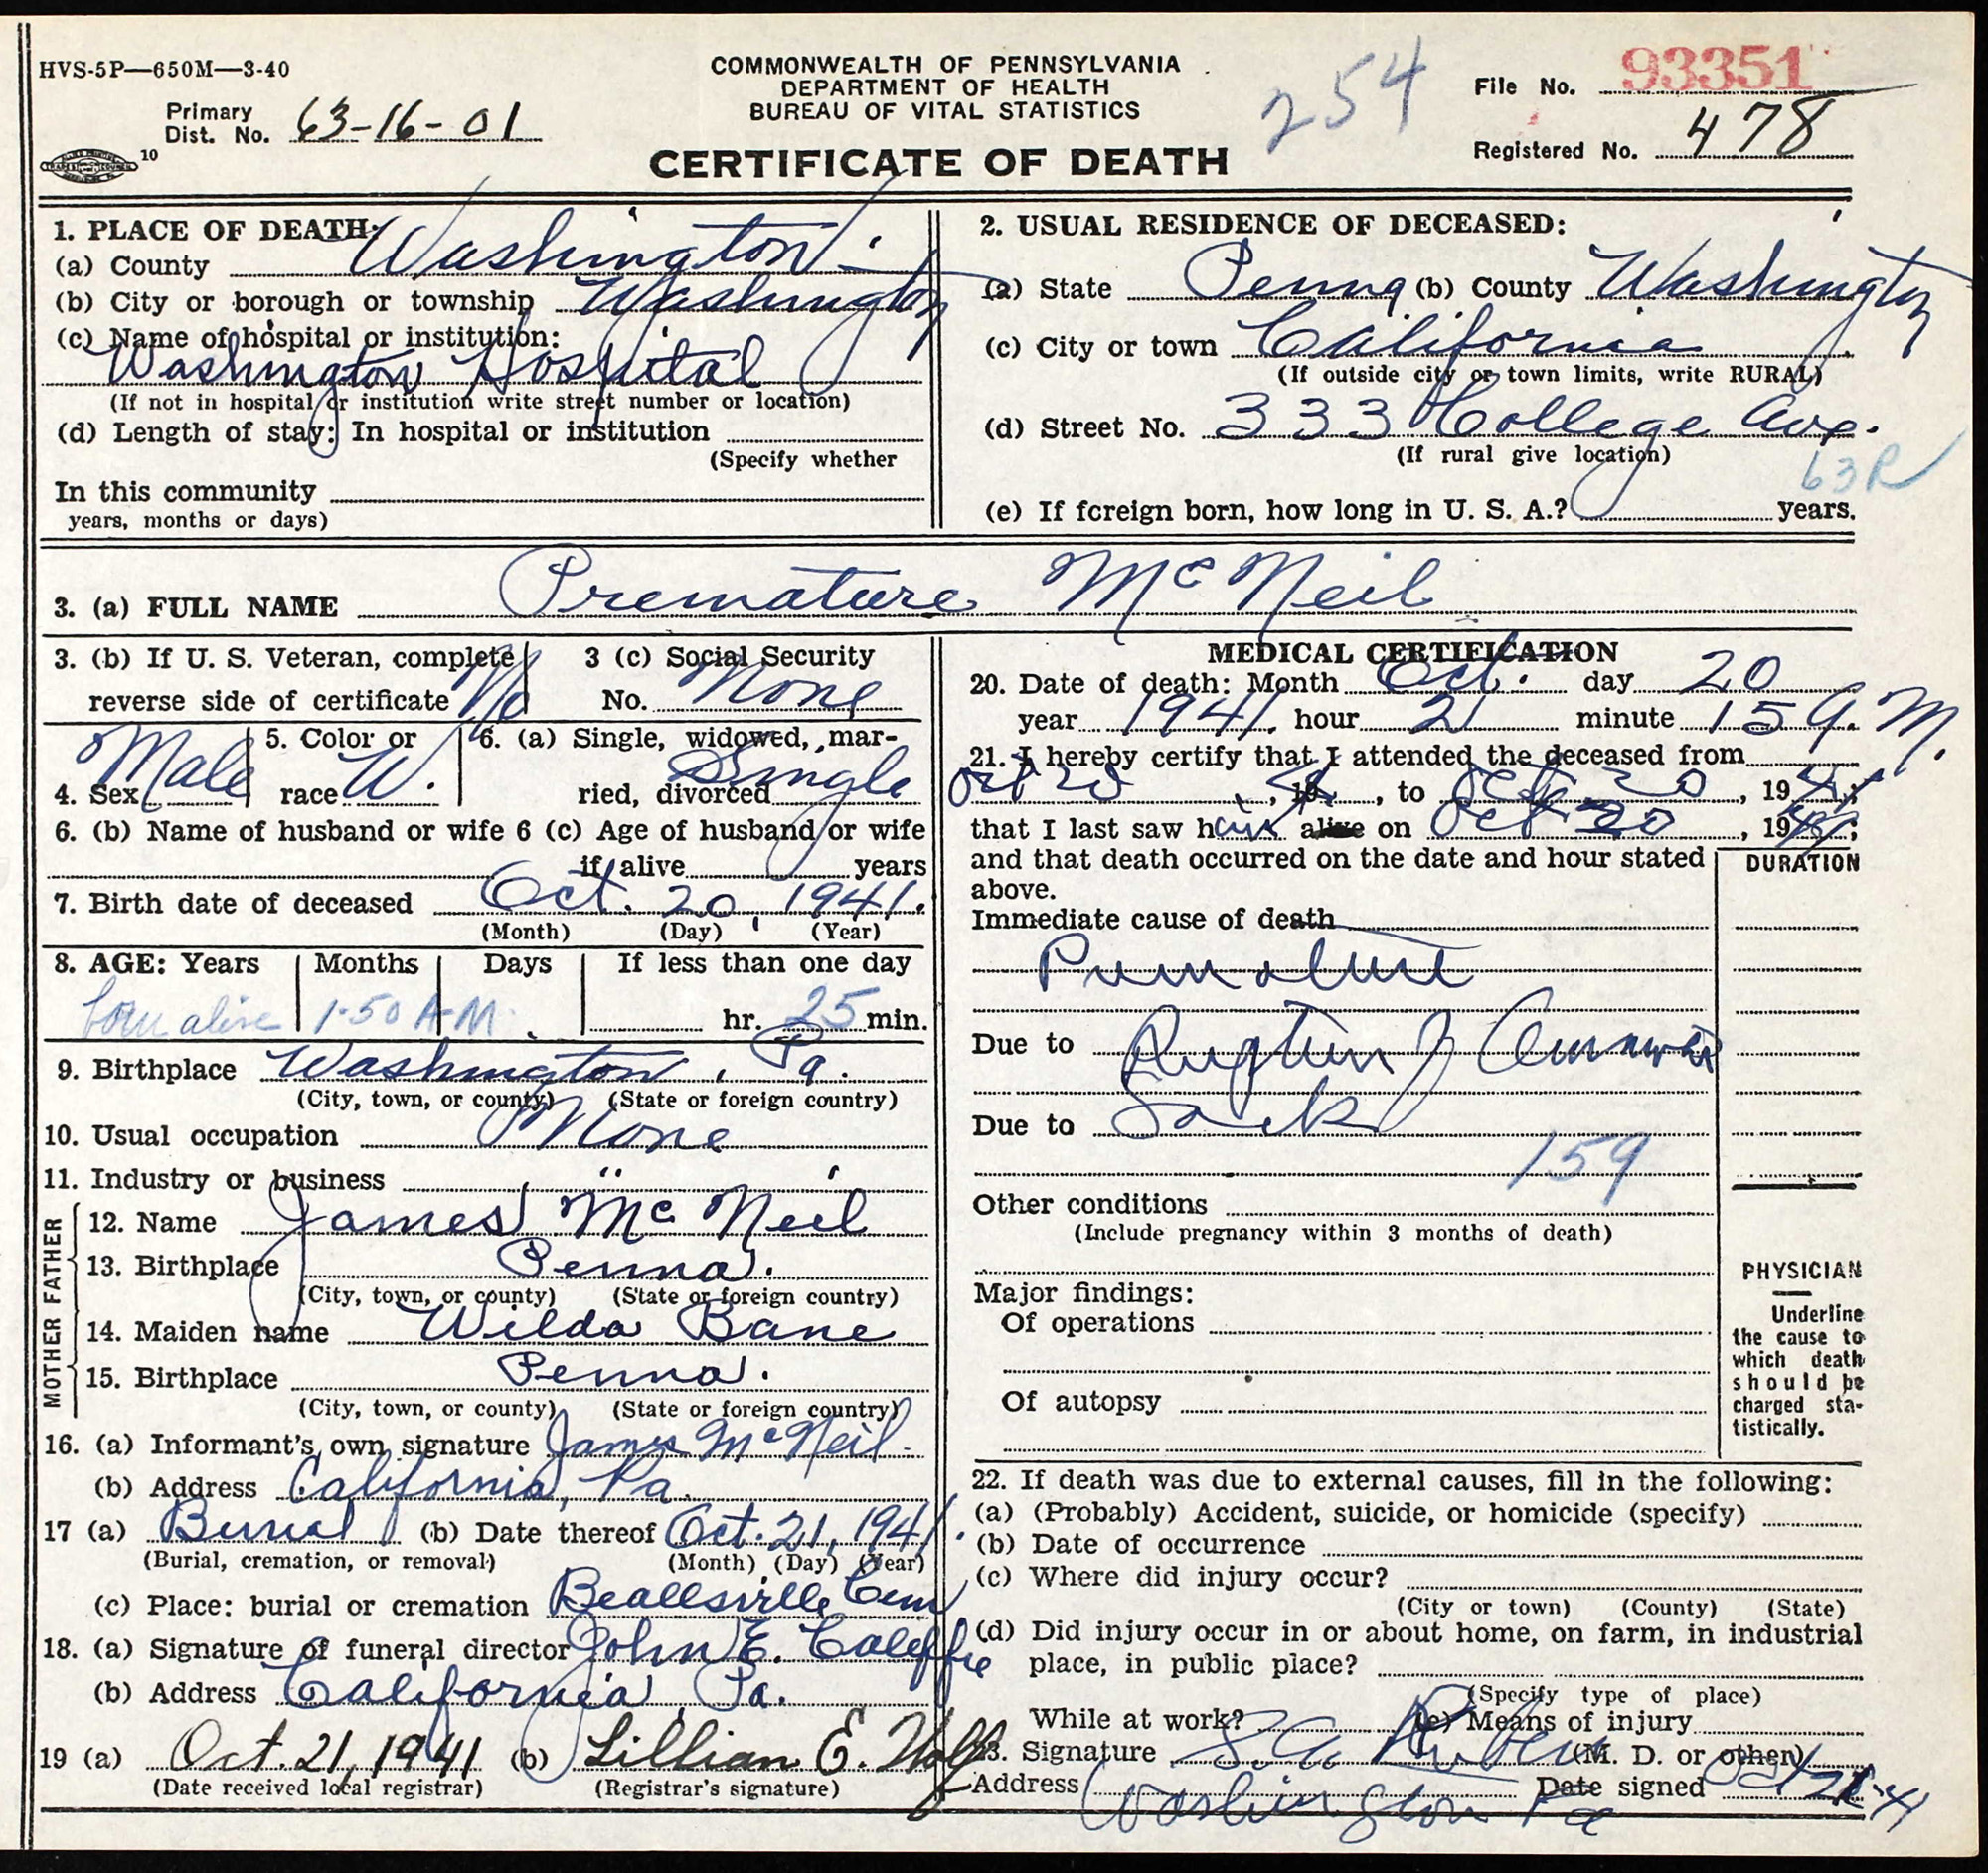 HVS-5P—650M—3-40
COMMONWEALTH OF PENNSYLVANIA
DEPARTMENT OF HEALTH
BUREAU OF VITAL STATISTICS
254
File No. 93351
Primary
Dist. No. 63-16-01
Registered No. 478
10
CERTIFICATE OF DEATH
1. PLACE OF DEATH:
(a) County Washington
(b) City or borough or township Washington
(c) Name of hospital or institution:
Washington Hospital
(If not in hospital or institution write street number or location)
(d) Length of stay: In hospital or institution
(Specify whether
In this community
years, months or days)
2. USUAL RESIDENCE OF DECEASED:
(a) State Penna (b) County Washington
(c) City or town California
(If outside city or town limits, write RURAL)
(d) Street No. 333 College Ave.
(If rural give location)
63R
(e) If foreign born, how long in U. S. A.? years.
3. (a) FULL NAME Premature McNeil
3. (b) If U. S. Veteran, complete
reverse side of certificate No
3 (c) Social Security
No. None
4. Sex Male
5. Color or
race W.
6. (a) Single, widowed, mar-
ried, divorced Single
6. (b) Name of husband or wife 6 (c) Age of husband or wife
if alive years
7. Birth date of deceased Oct. 20, 1941.
(Month) (Day) (Year)
8. AGE: Years Months Days If less than one day
born alive 1-50 A-M. hr. 25 min.
9. Birthplace Washington, Pa.
(City, town, or county) (State or foreign country)
10. Usual occupation None
11. Industry or business "
FATHER
12. Name James McNeil
13. Birthplace Penna.
(City, town, or county) (State or foreign country)
MOTHER
14. Maiden name Wilda Bane
15. Birthplace Penna.
(City, town, or county) (State or foreign country)
16. (a) Informant's own signature James McNeil
(b) Address California, Pa.
17 (a) Burial (b) Date thereof Oct. 21, 1941.
(Burial, cremation, or removal) (Month) (Day) (Year)
(c) Place: burial or cremation Beallsville Cem
18. (a) Signature of funeral director John E.
(b) Address California Pa.
19 (a) Oct. 21, 1941 (b) Lillian E.
(Date received local registrar) (Registrar's signature)
MEDICAL CERTIFICATION
20. Date of death: Month Oct. day 20
year 1941. hour 2 minute 15 a. M.
21. I hereby certify that I attended the deceased from
Oct 20, 1941, to Oct 20, 1941;
that I last saw him alive on Oct 20, 1941;
and that death occurred on the date and hour stated
above.
DURATION
Immediate cause of death
Premature
Due to Rupture of
Due to Sack
159
Other conditions
(Include pregnancy within 3 months of death)
Major findings:
Of operations
Of autopsy
PHYSICIAN
Underline
the cause to
which death
should be
charged sta-
tistically.
22. If death was due to external causes, fill in the following:
(a) (Probably) Accident, suicide, or homicide (specify)
(b) Date of occurrence
(c) Where did injury occur?
(City or town) (County) (State)
(d) Did injury occur in or about home, on farm, in industrial
place, in public place?
(Specify type of place)
While at work? (e) Means of injury
23. Signature (M. D. or other)
Address Washington Pa Date signed Oct 21-41